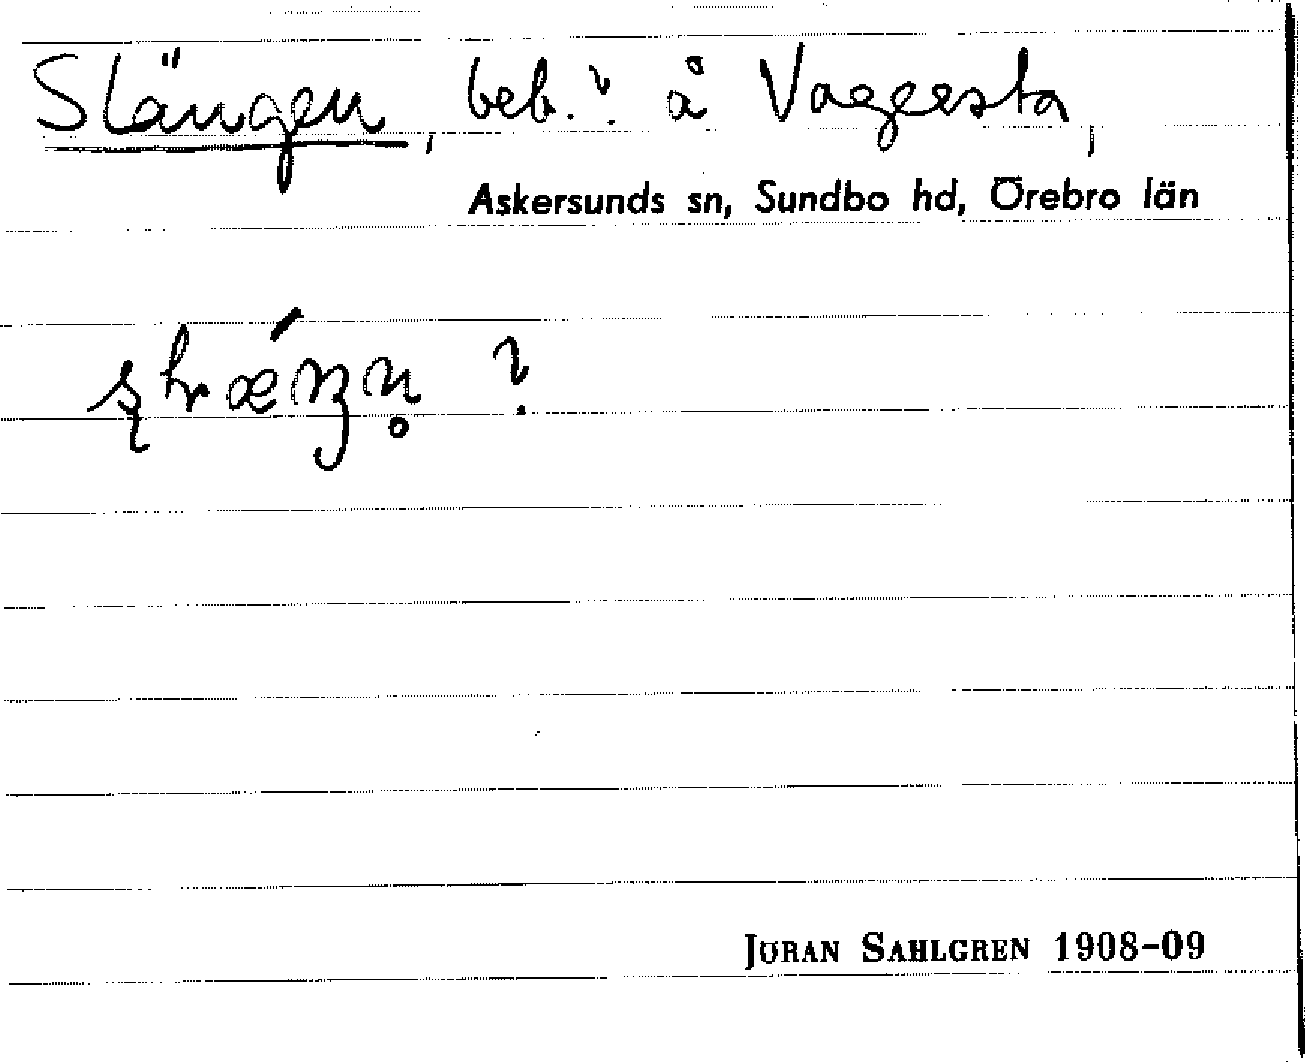 Slängen, beb.? å Vaggersta,
Askersunds sn, Sundbo hd, Örebro län
?
JÖRAN SAHLGREN 1908-09